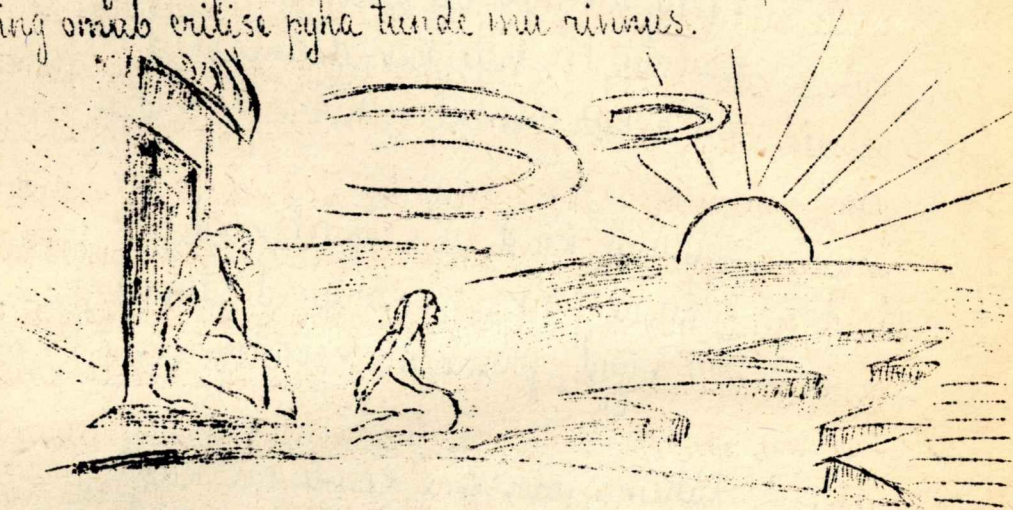 ing omab erilise pyha tunde mu rinnus.